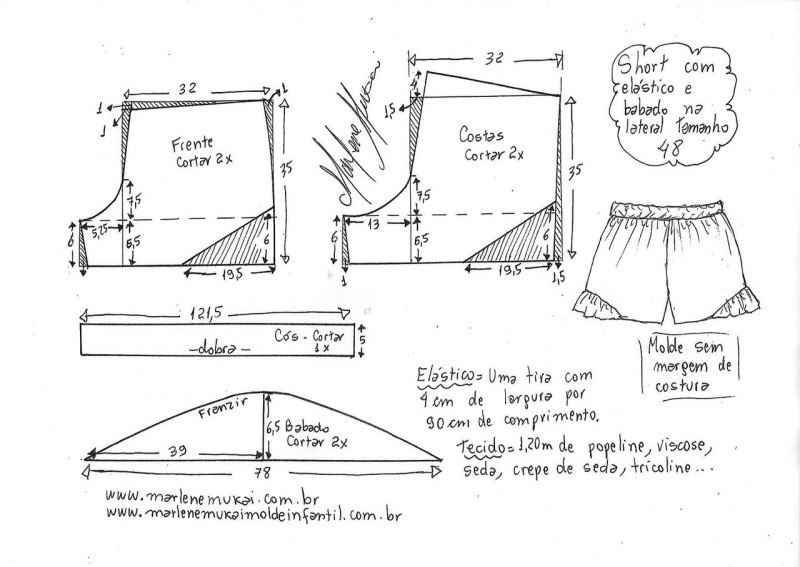 32
1
1
1
Frente
Cortar 2x
35
7,5
5,25
6
6,5
6
1
19,5
32
4
1,5
Costas
Cortar 2x
35
7,5
13
6
6,5
6
1
19,5
1,5
Marlene Mukai
Short com
elástico e
babado na
lateral Tamanho
48
121,5
Cós - Cortar
1x
-dobra-
5
Molde sem
margem de
costura
Franzir
6,5 Babado
Cortar 2x
39
78
Elástico= Uma tira com
4 cm de largura por
90 cm de comprimento.
Tecido= 1,20m de popeline, viscose,
seda, crepe de seda, tricoline...
www.marlenemukai.com.br
www.marlenemukaimoldeinfantil.com.br